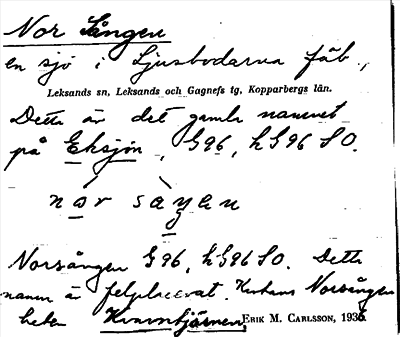 Nor Sången
en sjö i Ljusbodarna fäb.,
Leksands sn, Leksands och Gagnefs tg, Kopparbergs län.
Detta är det gamla namnet
på Eksjön, G96, hG96 SO.
nor saŋen
Norsången G96, hG96 SO. Detta
namn är felplacerat. Kartans Norsången
heter Kvarntjärnen. ERIK M. CARLSSON, 1936.